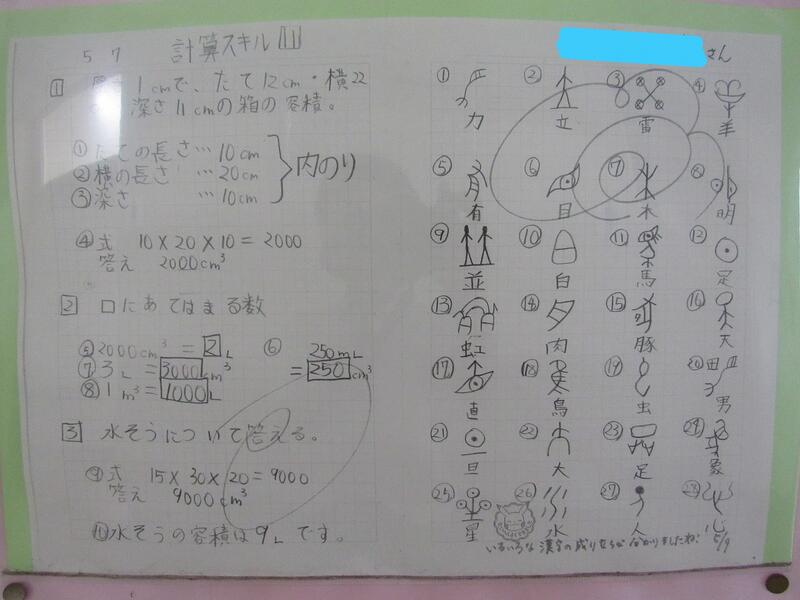 5 7 計算スキル 11
1 1cmで、たて12cm・横22
深さ11cmの箱の容積。
① たての長さ…10cm
② 横の長さ …20cm
③ 深さ …10cm
内のり
④ 式 10×20×10=2000
答え 2000cm³
2 □にあてはまる数
⑤ 2000cm³=2L
⑥ 250mL
=250cm³
⑦ 3L=3000cm³
⑧ 1m³=1000L
3 水そうについて答える。
⑨ 式 15×30×20=9000
答え 9000cm³
⑩ 水そうの容積は9Lです。
さん
① 力 ② 立 ③ 雷 ④ 羊
⑤ 有 ⑥ 目 ⑦ 木 ⑧ 明
⑨ 並 ⑩ 白 ⑪ 馬 ⑫ 足
⑬ 虹 ⑭ 肉 ⑮ 豚 ⑯ 天
⑰ 直 ⑱ 鳥 ⑲ 虫 ⑳ 男
㉑ 旦 ㉒ 大 ㉓ 足 ㉔ 象
㉕ 星 ㉖ 水 ㉗ 人 ㉘ 心
いろいろな漢字の成り立ちが分かりましたね。5/9